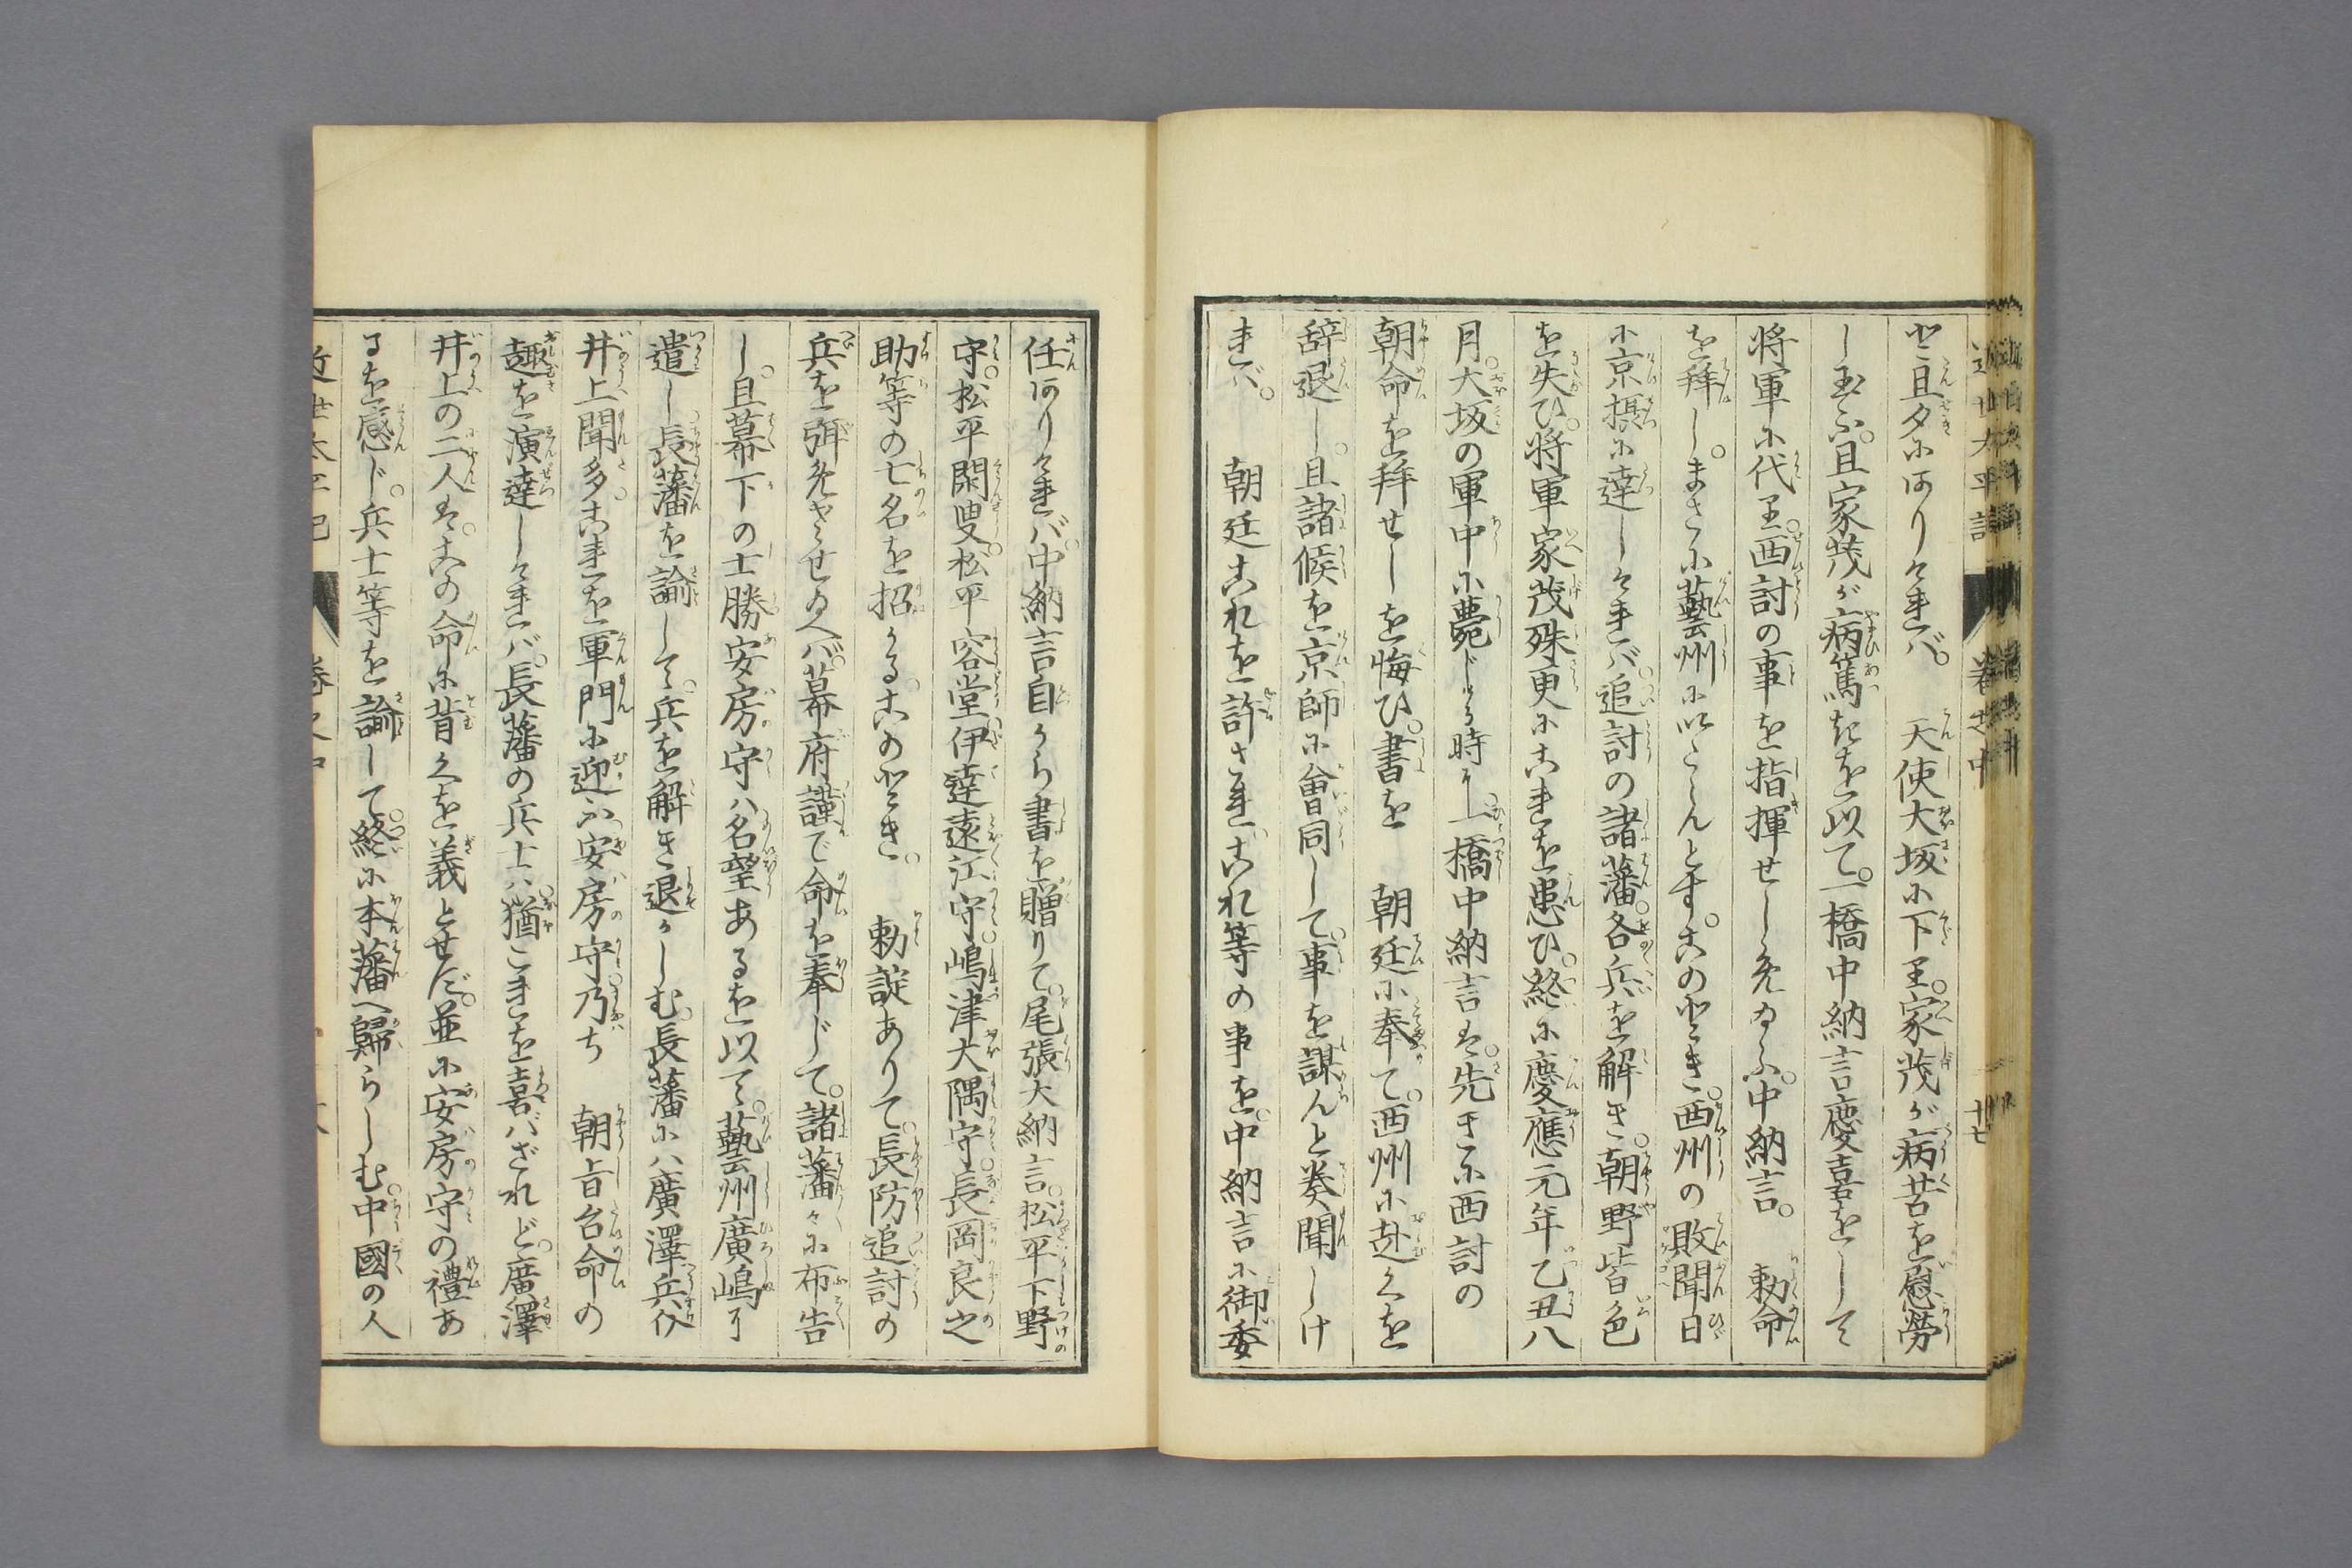 と且夕にありければ。 天使大坂に下り。家茂が病苦を慰勞
し玉ふ。且家茂が病篤きを以て。一橋中納言慶喜をして
将軍に代り。西討の事を指揮せしめ給ふ。中納言。 勅命
を拜し。まさに藝州に以たらんとす。このとき。西州の敗聞日
に京摂に達しければ。追討の諸藩。各兵を解き。朝野皆色
を失ひ。将軍家茂殊更にこれを患ひ。終に慶應元年乙丑八
月。大坂の軍中に薨じける時に。一橋中納言は。先きに西討の
朝命を拜せしを悔ひ。書を 朝廷に奉て。西州に赴くを
辞退し。且諸候を京師に會同して。事を謀んと奏聞しけ
れバ。 朝廷これを許され。これ等の事を。中納言に御委
任ありければ。中納言自から書を贈りて。尾張大納言。松平下野
守。松平閑叟。松平容堂。伊達遠江守。嶋津大隅守。長岡良之
助等の七名を招かる。このとき。 勅諚ありて。長防追討の
兵を弭めさせ給へバ。幕府謹で命を奉じて。諸藩々に布告
し。且幕下の士勝安房守ハ名望あるを以て。藝州廣嶋に
遣し。長藩を諭して。兵を解き退かしむ。長藩にハ廣澤兵介
井上聞多。これを軍門に迎ふ。安房守。乃ち 朝旨台命の
趣を演達しければ。長藩の兵士ハ。猶これを喜バざれど。廣澤
井上の二人は。この命に背くを義とせず。並に安房守の禮あ
るを感じ。兵士等を諭して。終に本藩へ歸らしむ。中國の人
近世太平記 卷之中 十七
近世太平記 卷之中